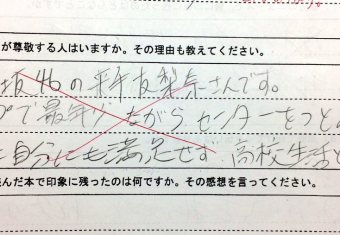 が尊敬する人はいますか。その理由も教えてください。
坂46の平手友梨奈さんです。
プで最年少ながらセンターをつとめ
自分にも満足せず 高校生活と
んだ本で印象に残ったのは何ですか。その感想を言ってください。